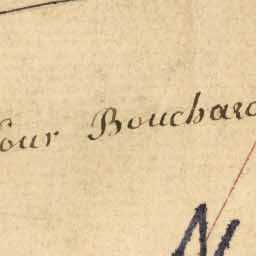 our Bouchard